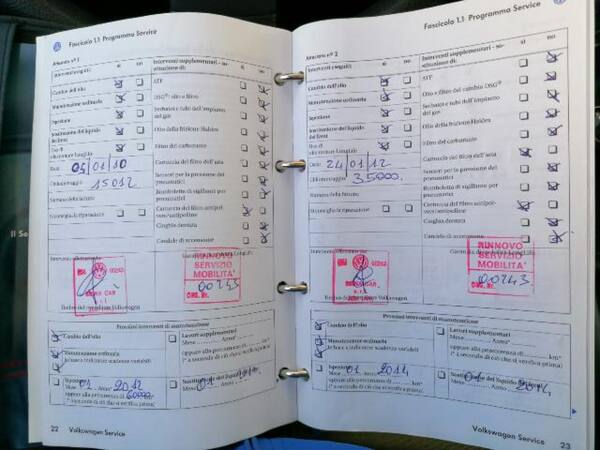 Fascicolo 1.1 Programma Service
Attuato n° 1
Interventi eseguiti:
sì no
Interventi supplementari - sostituzione di:
sì no
Cambio dell'olio
Manutenzione ordinaria
Ispezione
Sostituzione del liquido dei freni
Uso di
Data 05/01/10
Chilometraggio 15012
Numero della fattura
ATF
DSG: olio e filtro
Serbatoi e tubi dell'impianto del gas
Olio della frizione Haldex
Filtro del carburante
Cartuccia del filtro dell'aria
Sensori per la pressione dei pneumatici
Bomboletta di sigillante per pneumatici
Cartuccia del filtro antipolvere/antipolline
Cinghia dentata
Candele di accensione
RINNOVO
SERVIZIO
MOBILITA'
00243
ORG. Nr.
Prossimi interventi di manutenzione
Cambio dell'olio
Manutenzione ordinaria
in base a indicatore scadenza variabili
Lavori supplementari
Mese Anno*
oppure alla percorrenza di km*
(* a seconda di ciò che si verifica prima)
Ispezione
Mese 01 Anno* 2012
oppure alla percorrenza di 60000 km*
(* a seconda di ciò che si verifica prima)
22 Volkswagen Service
Fascicolo 1.1 Programma Service
Attuato n° 2
Interventi eseguiti:
sì no
Interventi supplementari - sostituzione di:
sì no
Cambio dell'olio
Manutenzione ordinaria
Ispezione
Sostituzione del liquido dei freni
Uso di
Data 24/01/12
Chilometraggio 35000
Numero della fattura
ATF
Olio e filtro del cambio DSG
Serbatoi e tubi dell'impianto del gas
Olio della frizione Haldex
Filtro del carburante
Cartuccia del filtro dell'aria
Sensori per la pressione dei pneumatici
Bomboletta di sigillante per pneumatici
Cartuccia del filtro antipolvere/antipolline
Cinghia dentata
Candele di accensione
RINNOVO
SERVIZIO
MOBILITA'
00243
ORG. Nr.
Prossimi interventi di manutenzione
Cambio dell'olio
Manutenzione ordinaria
in base a indicatore scadenza variabili
Lavori supplementari
Mese Anno*
oppure alla percorrenza di km*
(* a seconda di ciò che si verifica prima)
Ispezione
Mese 01 Anno* 2014
oppure alla percorrenza di km*
(* a seconda di ciò che si verifica prima)
Volkswagen Service 23